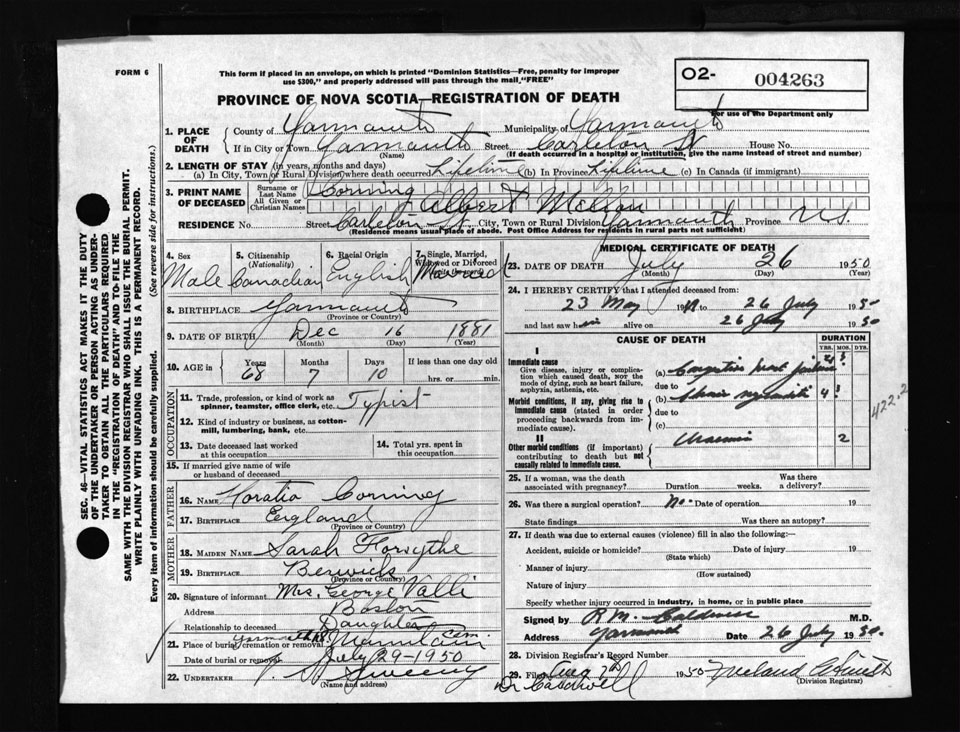 FORM 6
This form if placed in an envelope, on which is printed "Dominion Statistics—Free, penalty for improper
use $300," and properly addressed will pass through the mail "FREE"
O2- 004263
For use of the Department only
PROVINCE OF NOVA SCOTIA—REGISTRATION OF DEATH
1. PLACE OF DEATH County of Yarmouth Municipality of Yarmouth
If in City or Town Yarmouth Street Carleton St House No.
(Name) (If death occurred in a hospital or institution, give the name instead of street and number)
2. LENGTH OF STAY (in years, months and days)
(a) In City, Town or Rural Division where death occurred Lifetime (b) In Province Lifetime (c) In Canada (if immigrant)
3. PRINT NAME OF DECEASED Surname or Last Name Corning
All Given or Christian Names Albert
RESIDENCE No. Street Carleton St. City, Town or Rural Division Yarmouth Province N.S.
(Residence means usual place of abode. Post Office Address for residents in rural parts not sufficient)
4. Sex Male
5. Citizenship (Nationality) Canadian
6. Racial Origin English
7. Single, Married, Widowed or Divorced
8. BIRTHPLACE Yarmouth
(Province or Country)
9. DATE OF BIRTH Dec 16 1881
(Month) (Day) (Year)
10. AGE in Years 68 Months 7 Days 10 If less than one day old
hrs. or min.
OCCUPATION
11. Trade, profession, or kind of work as
spinner, teamster, office clerk, etc. Typist
12. Kind of industry or business, as cotton-
mill, lumbering, bank, etc.
13. Date deceased last worked
at this occupation
14. Total yrs. spent in
this occupation
15. If married give name of wife
or husband of deceased
FATHER
16. NAME Horatio Corning
17. BIRTHPLACE England
(Province or Country)
MOTHER
18. MAIDEN NAME Sarah Forsythe
19. BIRTHPLACE Berwick
(Province or Country)
20. Signature of informant Mrs. George Valli
Address Boston
Relationship to deceased Daughter
21. Place of burial, cremation or removal Yarmouth Mountain Cem.
Date of burial or removal July 29-1950
22. UNDERTAKER Sweeny
(Name and address)
MEDICAL CERTIFICATE OF DEATH
23. DATE OF DEATH July 26 1950
(Month) (Day) (Year)
24. I HEREBY CERTIFY that I attended deceased from:
23 May 19 to 26 July 1950
and last saw him alive on 26 July 1950
CAUSE OF DEATH DURATION
YRS. MOS. DYS.
I
Immediate cause
Give disease, injury or complica-
tion which caused death, not the
mode of dying, such as heart failure,
asphyxia, asthenia, etc.
(a) Congestive heart failure
due to
Morbid conditions, if any, giving rise to
immediate cause (stated in order
proceeding backwards from im-
mediate cause).
(b) Chronic myocarditis 4
due to
(c)
II
Other morbid conditions (if important)
contributing to death but not
causally related to immediate cause.
2
422.2
25. If a woman, was the death
associated with pregnancy? Duration weeks. Was there
a delivery?
26. Was there a surgical operation? No. Date of operation 19
State findings Was there an autopsy?
27. If death was due to external causes (violence) fill in also the following:—
Accident, suicide or homicide? Date of injury 19
(State which)
Manner of injury
(How sustained)
Nature of injury
Specify whether injury occurred in industry, in home, or in public place
Signed by R M. Caldwell M.D.
Address Yarmouth Date 26 July 1950.
28. Division Registrar's Record Number
29. Filed Aug 7th 1950
Dr Caldwell
(Division Registrar)
SEC. 46—VITAL STATISTICS ACT MAKES IT THE DUTY
OF THE UNDERTAKER OR PERSON ACTING AS UNDER-
TAKER TO OBTAIN ALL THE PARTICULARS REQUIRED
IN THE "REGISTRATION OF DEATH" AND TO FILE THE
SAME WITH THE DIVISION REGISTRAR WHO SHALL ISSUE THE BURIAL PERMIT.
WRITE PLAINLY WITH UNFADING INK. THIS IS A PERMANENT RECORD.
Every item of information should be carefully supplied. (See reverse side for instructions.)